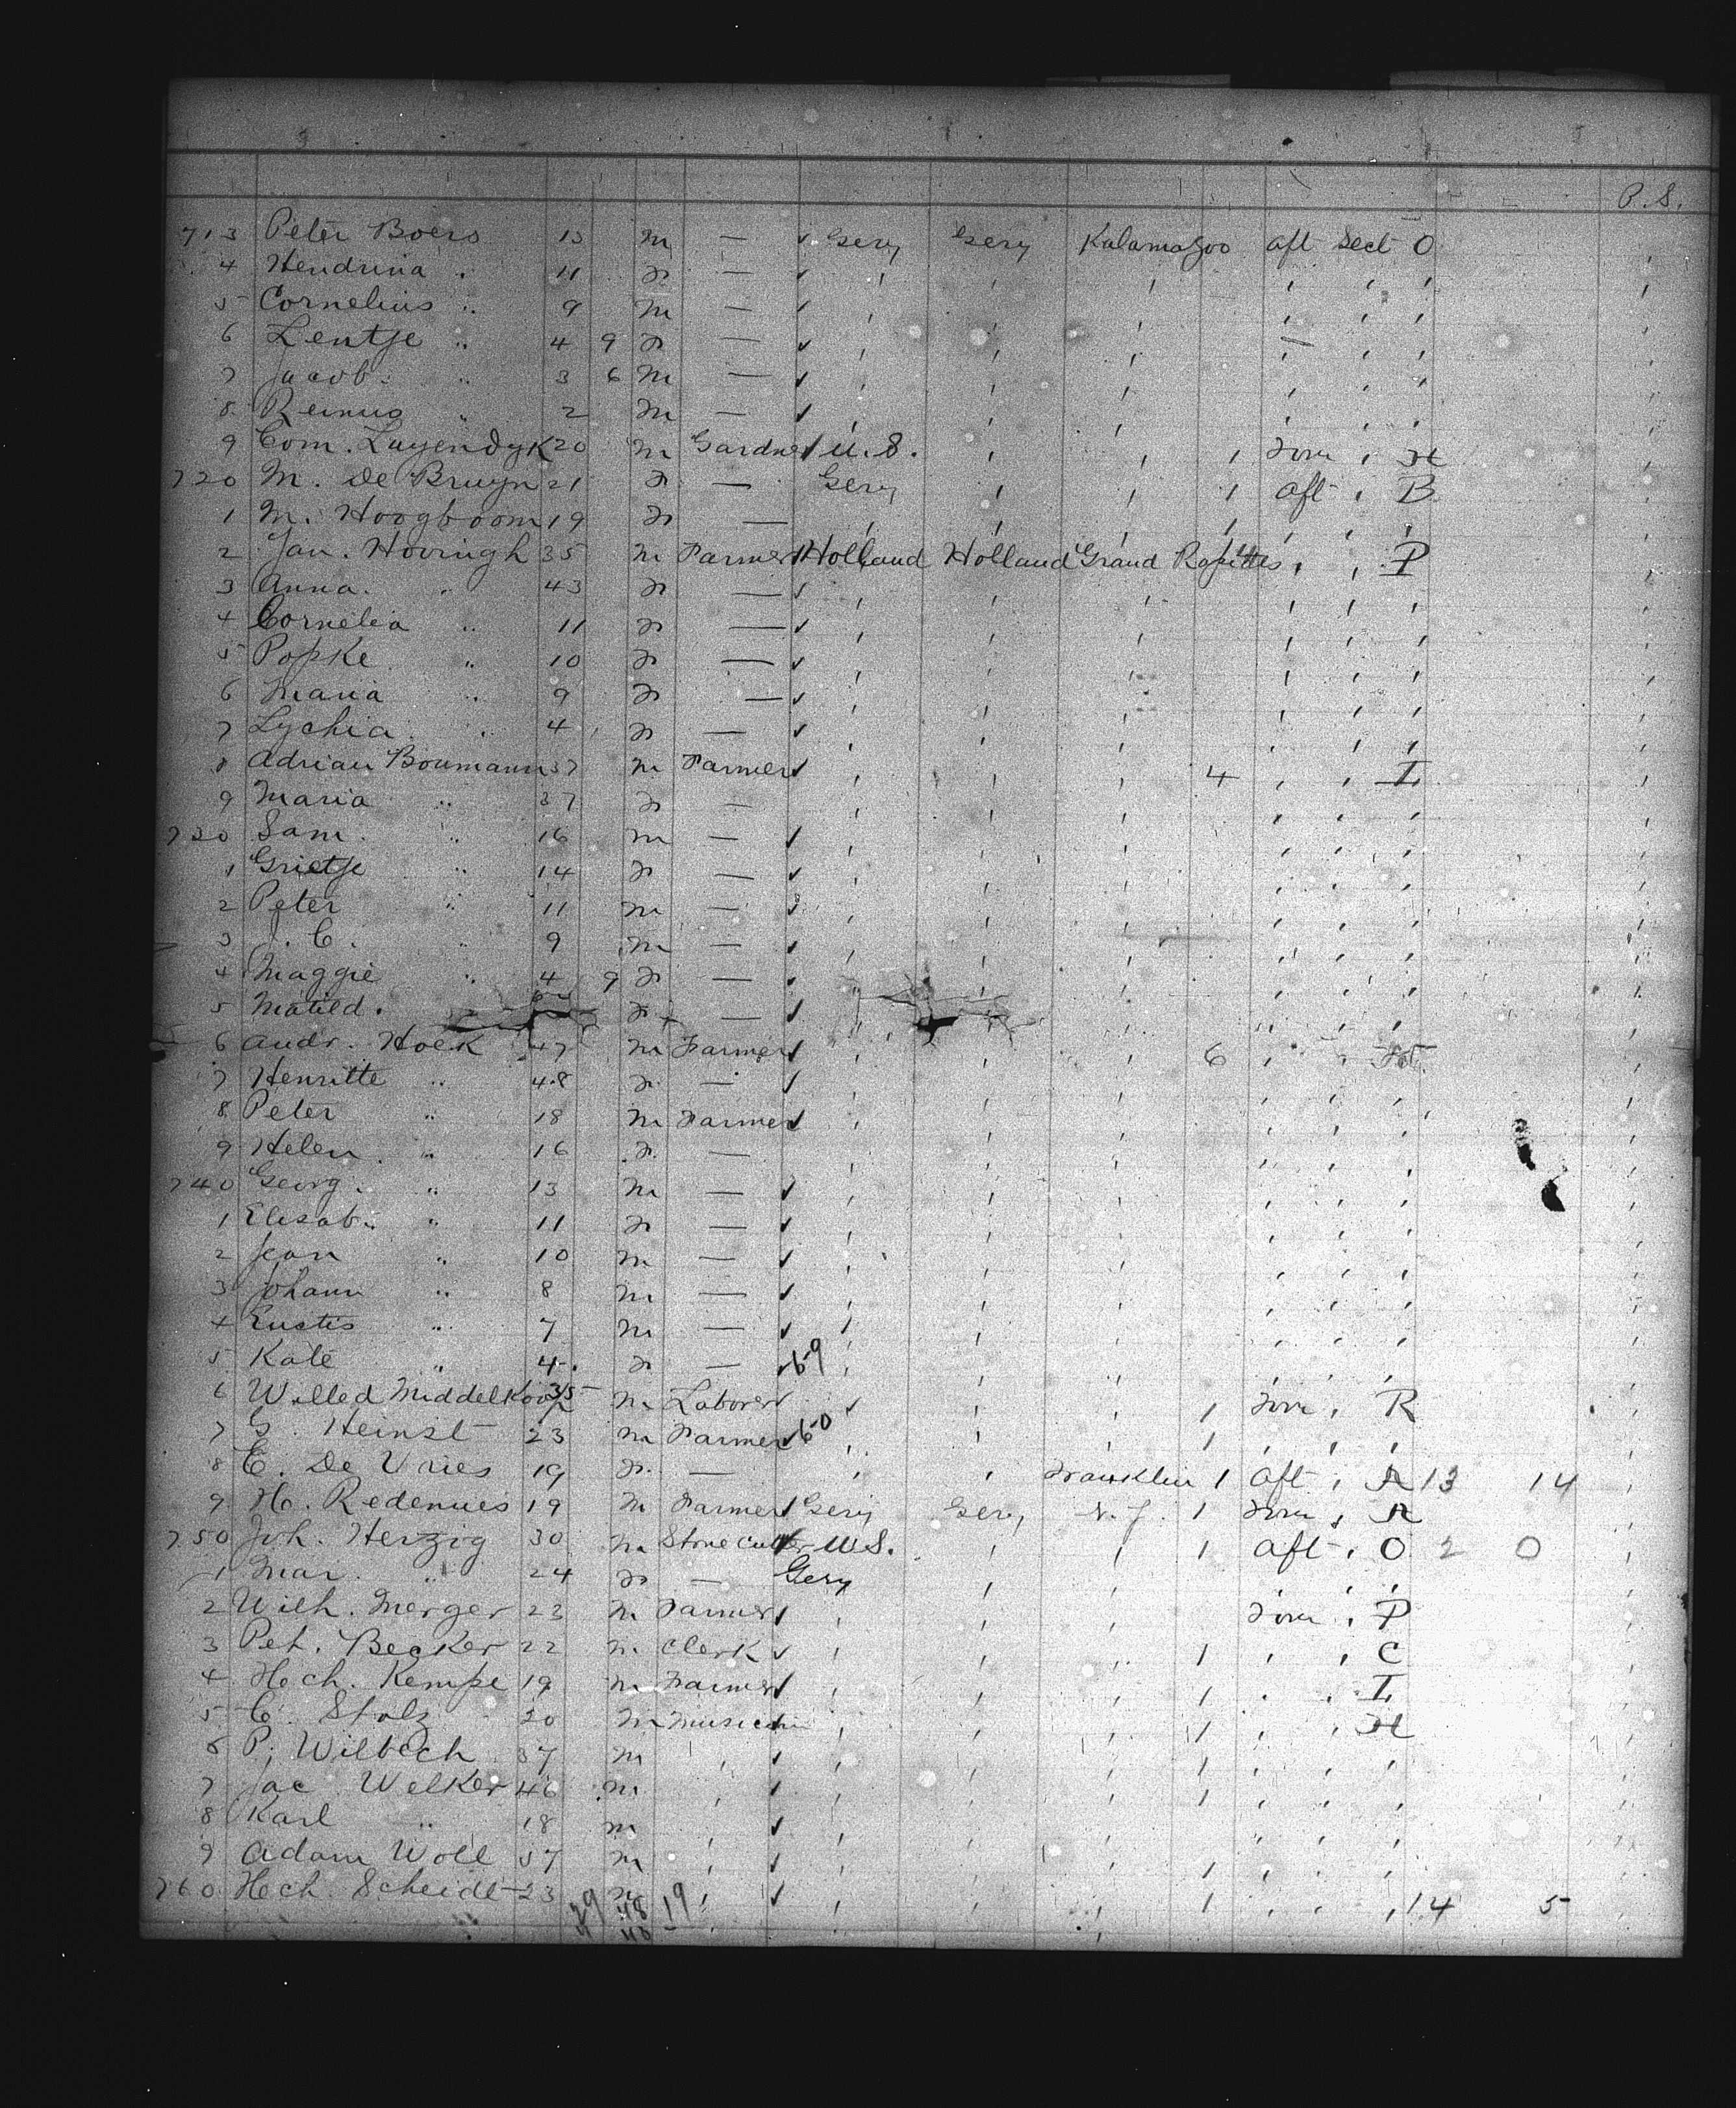 P.S.
713 Peter Boers 13 m — ✓ Gery Gery Kalamazoo aft Sect O
4 Hendrina " 11 — ✓ , , , , , ,
5 Cornelius " 9 m — ✓ , , , , , ,
6 Lentje " 4 9 — ✓ , , , , ,
7 Jacob " 3 6 m — ✓ , , , , , ,
8 Reinus " 2 m — ✓ , , , , , ,
9 Corn. Luyendyk 20 m Gardner U.S. , , 1 , H
720 M. De Bruyn 21 — Gery , , 1 aft , B
1 M. Hoogboom 19 — , , , 1 , , ,
2 Jan. Hovingh 35 m Farmer Holland Holland Grand Rapitts , , P
3 Anna. " 43 — ✓ , , , , , ,
4 Cornelia " 11 — ✓ , , , , , ,
5 Popke " 10 — ✓ , , , , , ,
6 Maria " 9 — ✓ , , , , , ,
7 Lychia " 4 — ✓ , , , , , ,
8 Adrian Boumann 37 m Farmer ✓ , , , 4 , , I
9 Maria " 37 — , , , , , ,
730 Sam. " 16 m — ✓ , , , , , ,
1 Grietje " 14 — ✓ , , , , , ,
2 Peter " 11 m — ✓ , , , , , ,
3 J. C. " 9 m — ✓ , , , , , ,
4 Maggie " 4 9 — ✓ , , , , , ,
5 Matild. — ✓ , , , , ,
6 Andr. Hoek 47 m Farmer ✓ , , , 6 , ,
7 Henritte " 48 — ✓ , , , , , ,
8 Peter " 18 m Farmer ✓ , , , , , ,
9 Helen " 16 — , , , , , ,
740 Georg. " 13 m — ✓ , , , , , ,
1 Elisab. " 11 — ✓ , , , , , ,
2 Jean " 10 m — ✓ , , , , , ,
3 Johann " 8 m — ✓ , , , , , ,
4 Eustis " 7 m — ✓ , , , , , ,
5 Kate " 4 — ✓ 69 , , , , , ,
6 Willed Middelkoop 35 m Laborer ✓ , , , 1 , R
7 G. Heinst 23 m Farmer ✓ 60 , , , 1 , , ,
8 C. De Vries 19 — , , Franklin 1 aft , 13 14
9 H. Redenius 19 m Farmer Gery Gery N.J. 1 ,
750 Joh. Herzig 30 m Stonecutter U.S. , , 1 aft , O 2 0
1 Mar. " 24 — Gery , , , , ,
2 Wilh. Merger 23 m Farmer ✓ , , , , P
3 Pet. Becker 22 m Clerk ✓ , , , 1 , , C
4 Hch. Kempe 19 m Farmer ✓ , , , 1 , , I
5 C. Stolz 20 m Musician , , , 1 , , H
6 P. Wilbech 37 m , ✓ , , , 1 , , ,
7 Jac. Welker 46 m , ✓ , , , 1 , , ,
8 Karl " 18 m , ✓ , , , , , ,
9 Adam Woll 57 m , ✓ , , , 1 , , ,
760 Hch. Scheidt 23 m , ✓ , , , 1 , , , 14 5
39 48 19